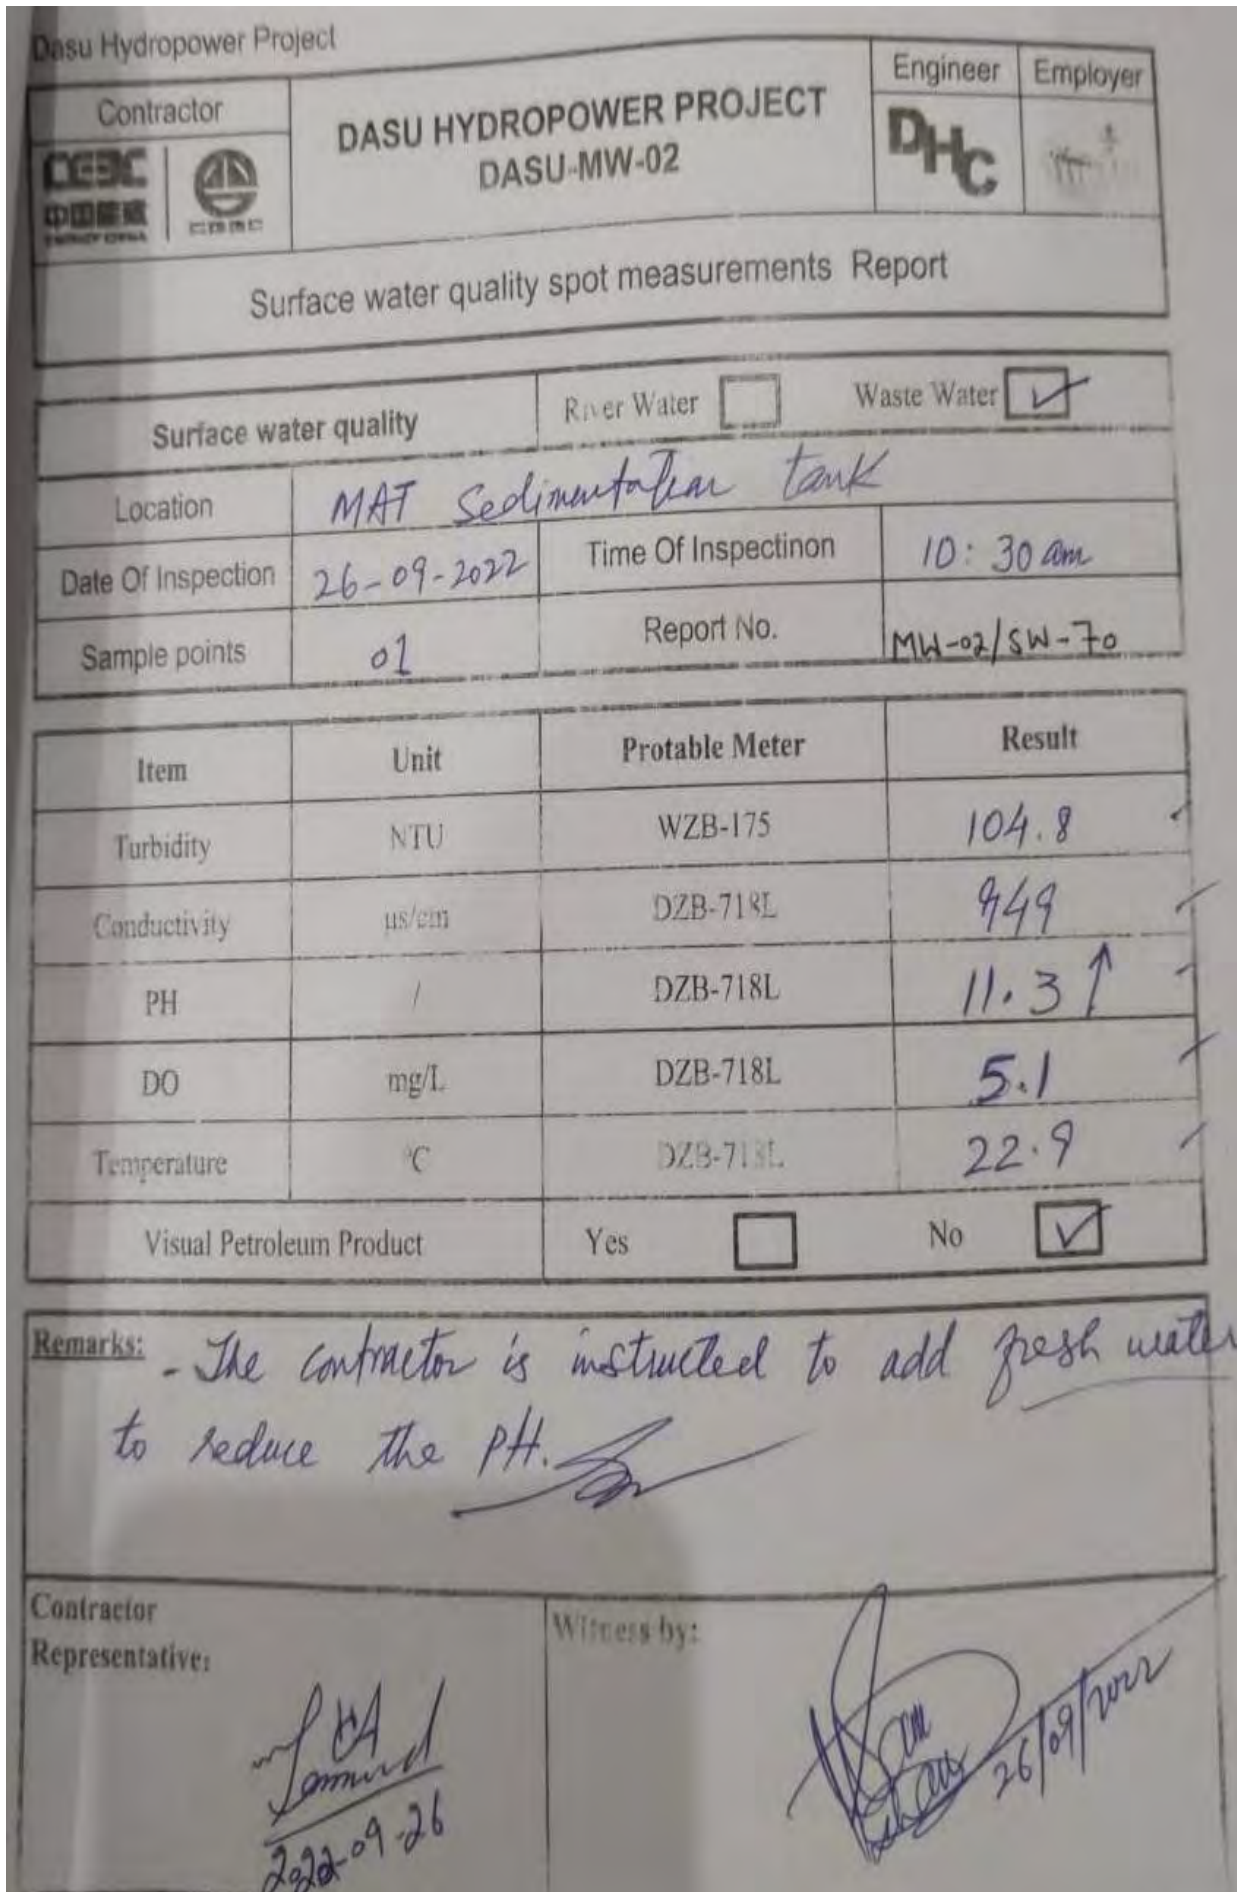 Dasu Hydropower Project
Contractor
DASU HYDROPOWER PROJECT
DASU-MW-02
Engineer
Employer
中国能建
DHC
Surface water quality spot measurements Report
Surface water quality River Water Waste Water ✓
Location MAT Sedimentation tank
Date Of Inspection 26-09-2022 Time Of Inspectinon 10:30 am
Sample points 01 Report No. MW-02/SW-70
Item Unit Protable Meter Result
Turbidity NTU WZB-175 104.8
Conductivity µs/cm DZB-718L 949
PH / DZB-718L 11.3 ↑
DO mg/L DZB-718L 5.1
Temperature °C DZB-718L 22.9
Visual Petroleum Product Yes No ✓
Remarks: - The contractor is instructed to add fresh water
to reduce the PH.
Contractor
Representative:
Witness by:
2022-09-26
26/09/2022